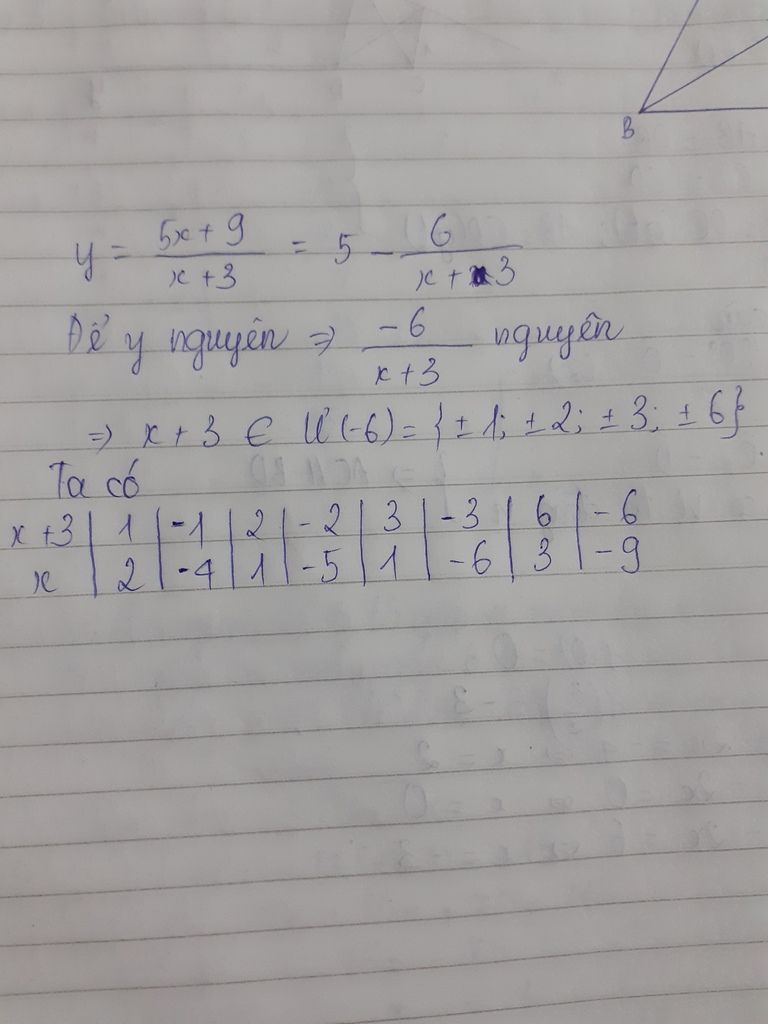 B
y = 5x + 9 / x + 3 = 5 - 6 / x + 3
Để y nguyên => -6 / x + 3 nguyên
=> x + 3 ∈ Ư(-6) = {±1; ±2; ±3; ±6}
Ta có
x + 3 | 1 | -1 | 2 | -2 | 3 | -3 | 6 | -6
x | 2 | -4 | 1 | -5 | 1 | -6 | 3 | -9